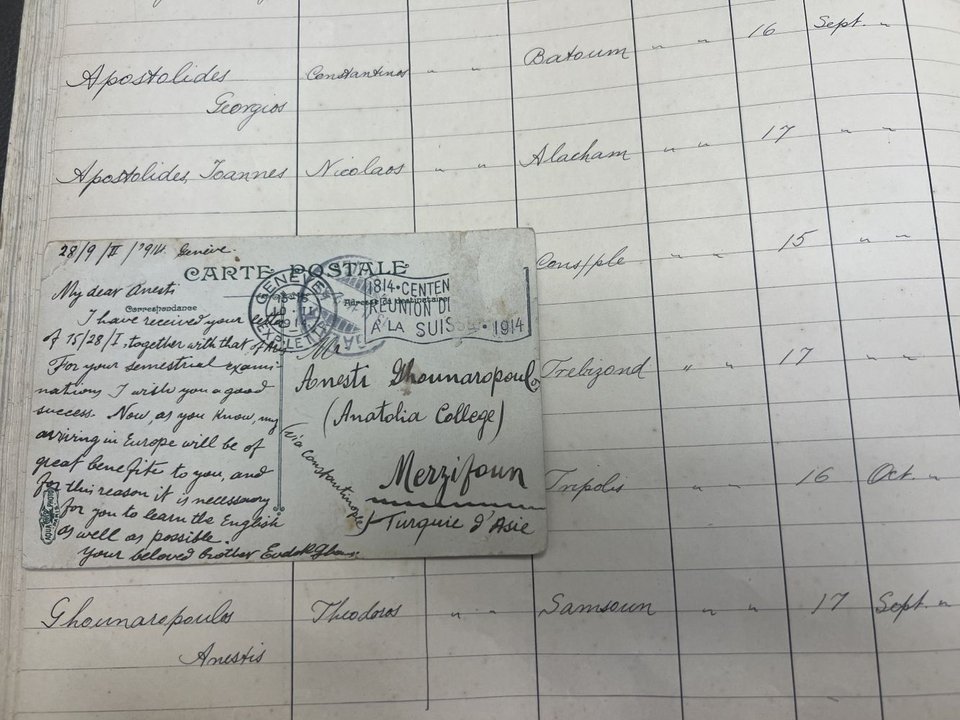 Apostolides Constantinos " " Batoum " " 16 Sept. "
Georgios
Apostolides, Ioannes Nicolaos " " Alacham " " 17 " "
Cons/ple " " 15 " "
Trebizond " " 17 " "
Tripolis " " 16 Oct. "
Ghounaropoulos Theodoros " " Samsoun " " 17 Sept. "
Anestis
28/9/II/1914. Genève.
CARTE POSTALE
Correspondance
Adresse du destinataire
My dear Anesti
I have received your letter
of 15/28/I, together with that of
For your semestrial exami-
nations I wish you a good
success. Now, as you know, my
arriving in Europe will be of
great benefites to you, and
for this reason it is necessary
for you to learn the English
as well as possible.
Your beloved brother
GENÈVE
EXP. LETT.
1814 • CENTEN
REUNION DE
A LA SUISSE • 1914
Mr
Anesti Ghounaropoulos
(Anatolia College)
Merzifoun
(via Constantinople)
Turquie d'Asie